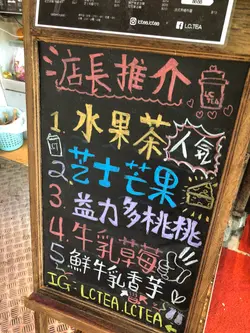 LC.TEA
店長推介
LC TEA
1. 水果茶 人氣
2. 芝士芒果
3. 益力多桃桃
4. 牛乳草莓
5. 鮮牛乳香芋
IG: LCTEA.LCTEA